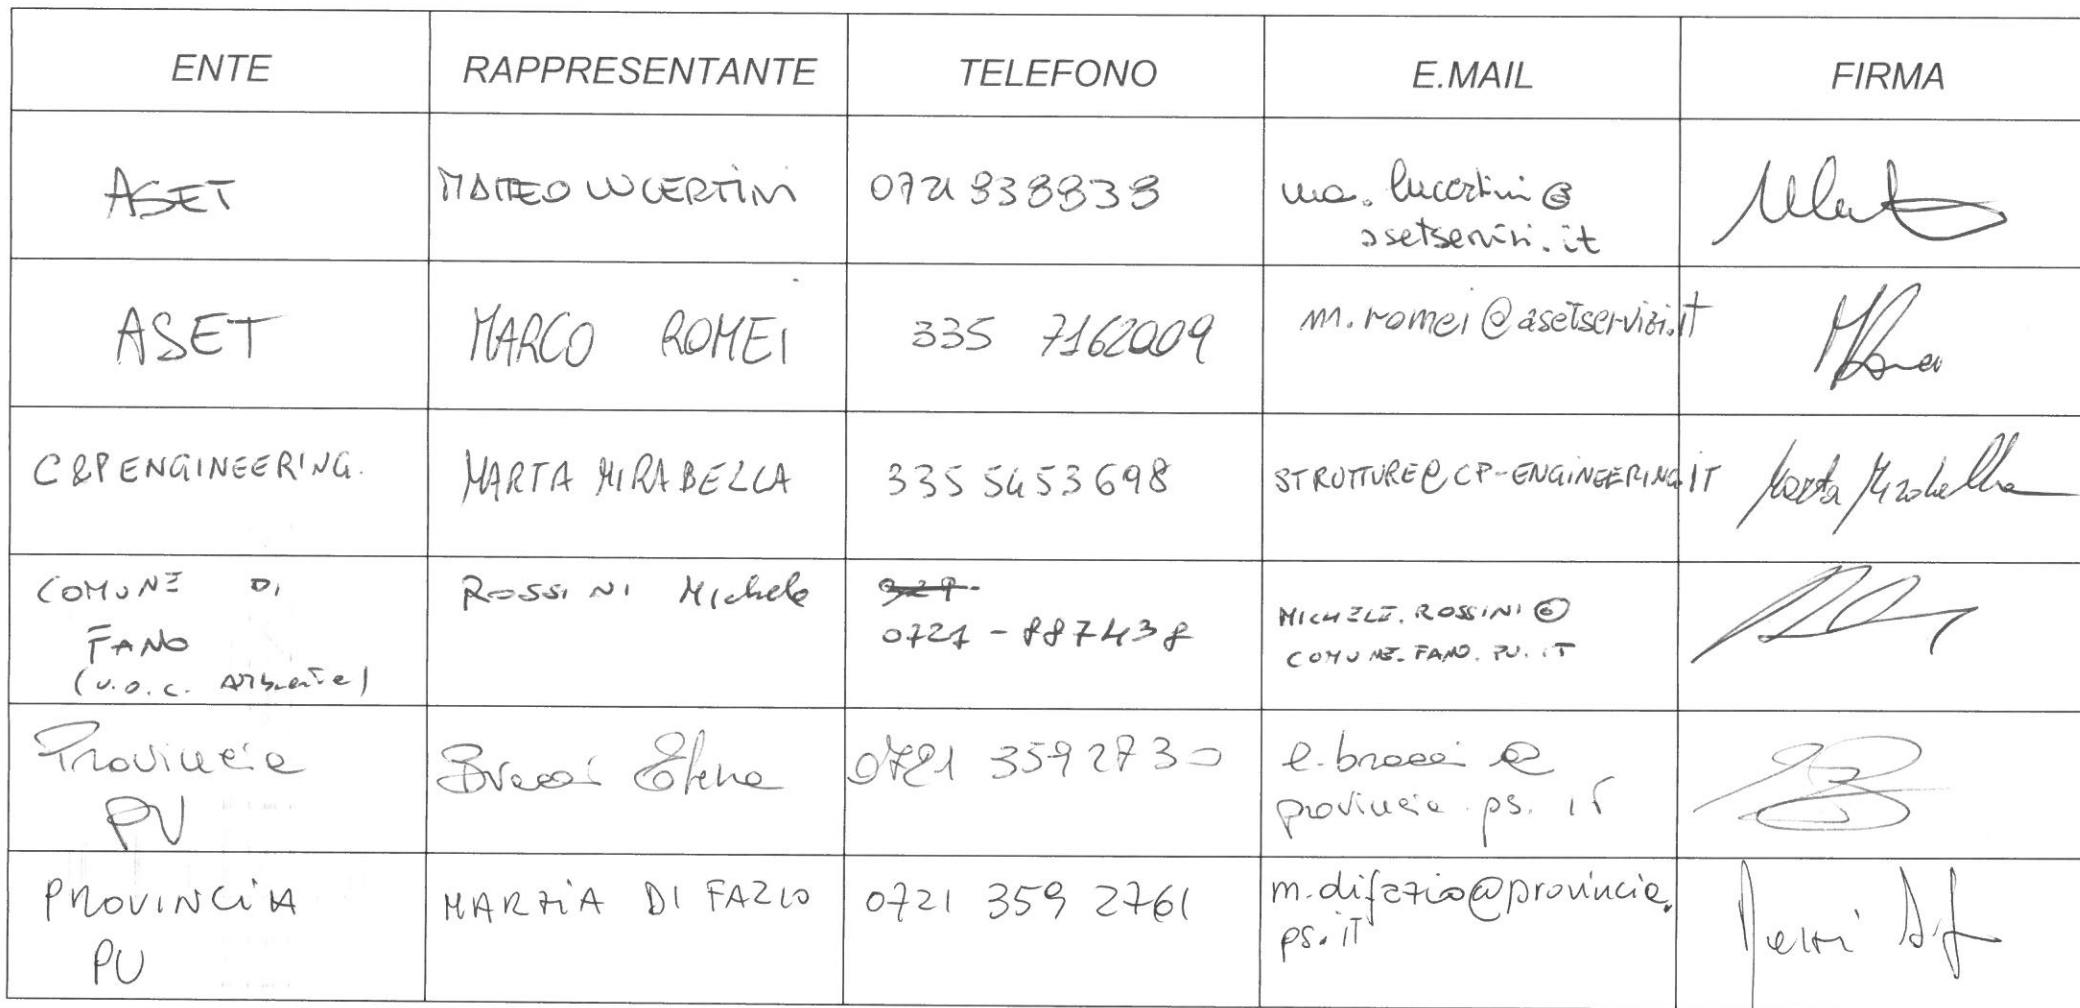 ENTE RAPPRESENTANTE TELEFONO E.MAIL FIRMA
ASET MATTEO LUCERTINI 0721 838838 ma.lucertini@
asetservizi.it
ASET MARCO ROMEI 335 7162009 m.romei@asetservizi.it
C&P ENGINEERING. MARTA MIRABELLA 335 5453698 STRUTTURE@CP-ENGINEERING.IT Marta Mirabella
COMUNE DI ROSSINI Michele
FANO 0721-887438 MICHELE.ROSSINI@
(U.O.C. Ambiente) COMUNE.FANO.PU.IT
Provincia Bracci Elena 0721 3592730 e.bracci@
PU provincia.ps.it
PROVINCIA MARZIA DI FAZIO 0721 359 2761 m.difazio@provincia.
PU ps.it